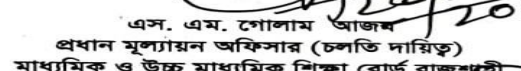 20
এস. এম. গোলাম আজম
প্রধান মূল্যায়ন অফিসার (চলতি দায়িত্ব)
মাধ্যমিক ও উচ্চ মাধ্যমিক শিক্ষা বোর্ড